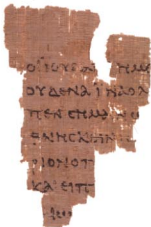 ΟΙ ΙΟΥΔΑΙ ΗΜ
ΟΥΔΕΝΑ ΙΝΑ Ο Λ
ΠΕΝ ϹΗΜΑΙΝΩ
ΘΝΗϹΚΕΙΝ
ΡΙΟΝ Ο Π
ΚΑΙ ΕΙΠ